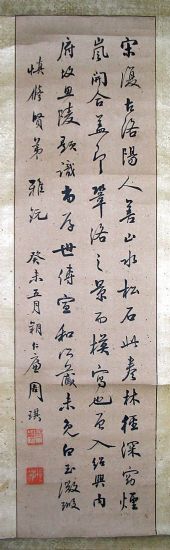 宋復古洛陽人善山水松石此卷林徑深窈煙
嵐開合蓋即鞏洛之景而模寫也入紹興內
府故思陵題識尚存世傳宣和所藏未免白玉微瑕
慎修賢弟 雅玩 癸未五月 周琪